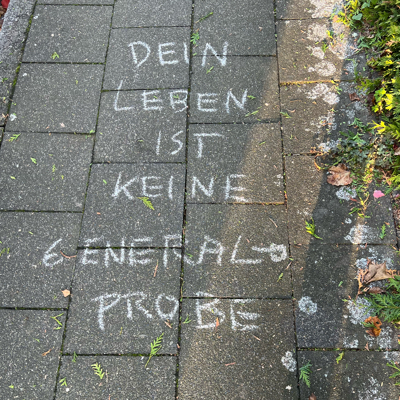 DEIN
LEBEN
IST
KEINE
GENERAL-
PROBE